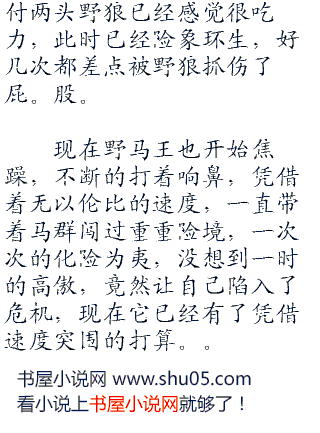 付两头野狼已经感觉很吃
力，此时已经险象环生，好
几次都差点被野狼抓伤了
屁。股。
现在野马王也开始焦
躁，不断的打着响鼻，凭借
着无以伦比的速度，一直带
着马群闯过重重险境，一次
次的化险为夷，没想到一时
的高傲，竟然让自己陷入了
危机，现在它已经有了凭借
速度突围的打算。。
书屋小说网 www.shu05.com
看小说上书屋小说网就够了！